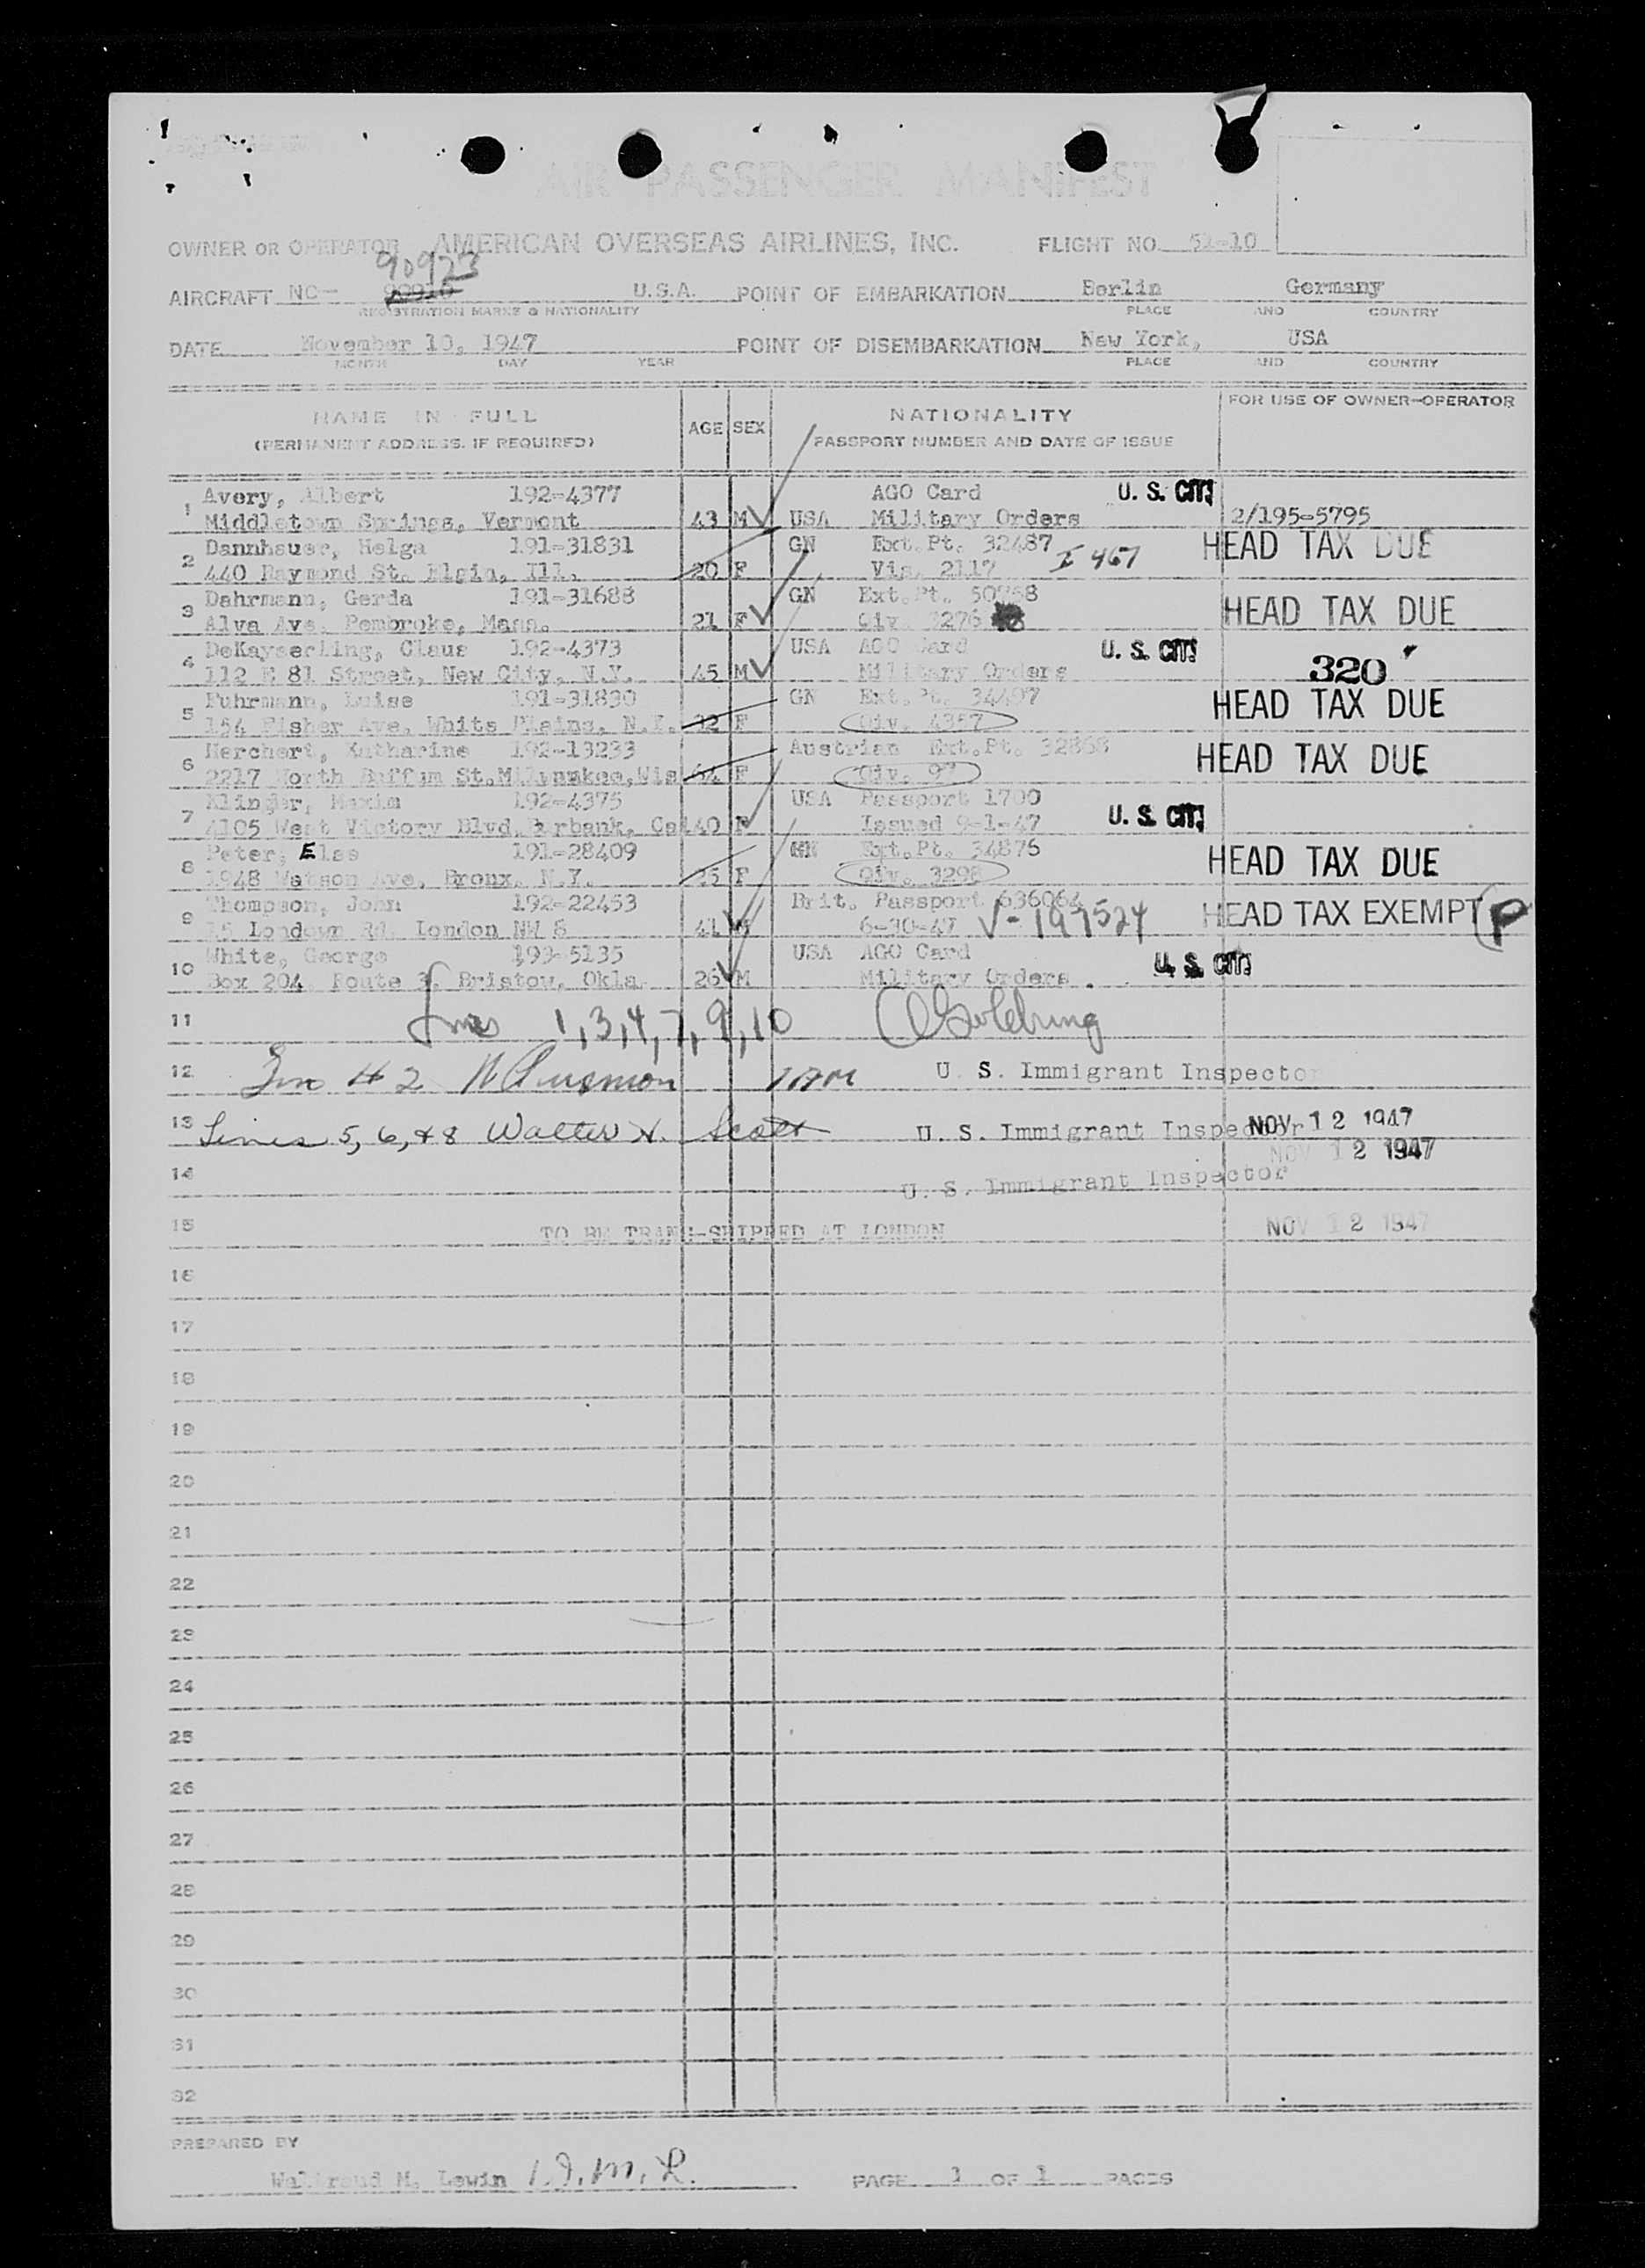 AIR PASSENGER MANIFEST
OWNER OR OPERATOR AMERICAN OVERSEAS AIRLINES, INC. FLIGHT NO. 52-10
90923
AIRCRAFT NC- U.S.A. POINT OF EMBARKATION Berlin Germany
REGISTRATION MARKS & NATIONALITY PLACE AND COUNTRY
DATE November 10, 1947 POINT OF DISEMBARKATION New York, USA
MONTH DAY YEAR PLACE AND COUNTRY
NAME IN FULL AGE SEX NATIONALITY FOR USE OF OWNER-OPERATOR
(PERMANENT ADDRESS, IF REQUIRED) PASSPORT NUMBER AND DATE OF ISSUE
1 Avery, Albert 192-4377 AGO Card U. S. CIT.
Middletown Springs, Vermont 43 M USA Military Orders 2/195-5795
2 Dannhauer, Helga 191-31831 GN Ext.Pt. 32487 HEAD TAX DUE
440 Raymond St. Elgin, Ill. 20 F Vis. 2117 I 467
3 Dahrmann, Gerda 191-31688 GN Ext.Pt. HEAD TAX DUE
Alva Ave. Pembroke, Mass. 21 F Qiv. 3276
4 DeKayserling, Claus 192-4373 USA AGO Card U. S. CIT.
112 E 81 Street, New City, N.Y. 45 M Military Orders 320
5 Fuhrmann, Luise 191-31830 GN Ext.Pt. 34497 HEAD TAX DUE
154 Fisher Ave, White Plains, N.Y. 22 F Qiv. 4357
6 Herchert, Katharine 192-13233 Austrian Ext.Pt. 32868 HEAD TAX DUE
2217 North Buffum St.Milwaukee,Wis F Qiv.
7 Klinger, Maxim 192-4375 USA Passport 1700
4105 West Victory Blvd. Burbank, Cal 40 Issued 9-1-47 U. S. CIT.
8 Peter, Else 191-28409 GN Ext.Pt. 34876 HEAD TAX DUE
1948 Watson Ave, Bronx, N.Y. 25 F Qiv. 3298
9 Thompson, John 192-22453 Brit. Passport 636064 HEAD TAX EXEMPT P
London NW 8 41 M 6-30-47 V-197524
10 White, George 193-5135 USA AGO Card
Box 204 Route 3, Bristow, Okla. 26 M Military Orders U. S. CIT.
11 Lines 1,3,4,7,9,10 Goldring
12 U. S. Immigrant Inspector
13 Lines 5, 6, & 8 Walter N. Scott U. S. Immigrant Inspector NOV 12 1947
NOV 12 1947
14 U. S. Immigrant Inspector
15 TO BE TRANS-SHIPPED AT LONDON NOV 12 1947
16
17
18
19
20
21
22
23
24
25
26
27
28
29
30
31
32
PREPARED BY
Waltraud M. Lewin PAGE 1 OF 1 PAGES